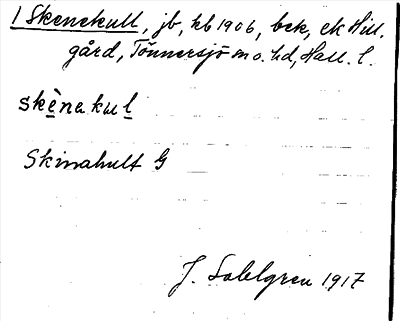 1 Skenekull, jb, kb 1906, bek, ek Hill.
gård, Tönnersjö sn o. hd, Hall. l.
skènakul
Skinahult G
J. Sahlgren 1917